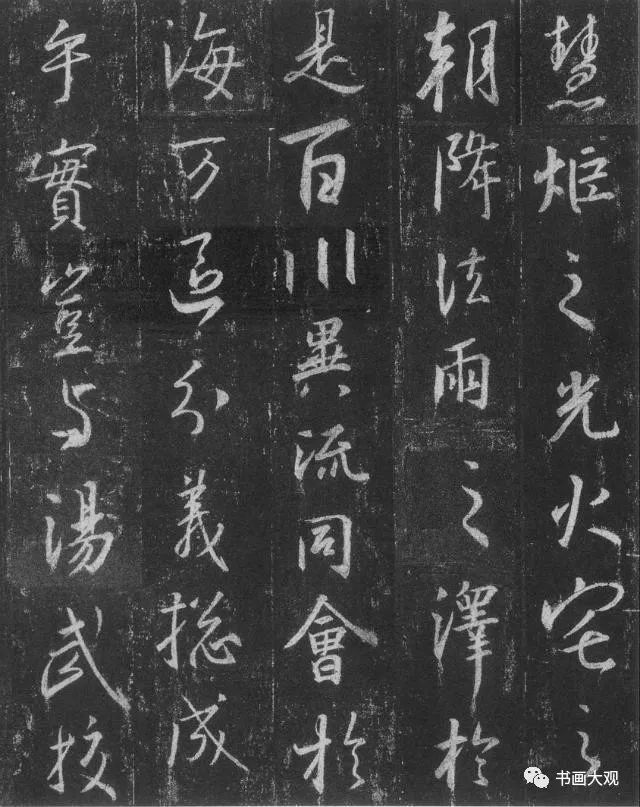 慧炬之光火宅之
朝降法雨之澤於
是百川異流同會於
海万區分義揔成
乎實豈与湯武校
书画大观